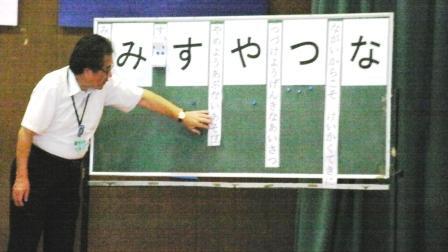 なつやすみ
ながいからこそ けいかくてきに
つづけようげんきなあいさつ
やめようあぶないあそび
す
み